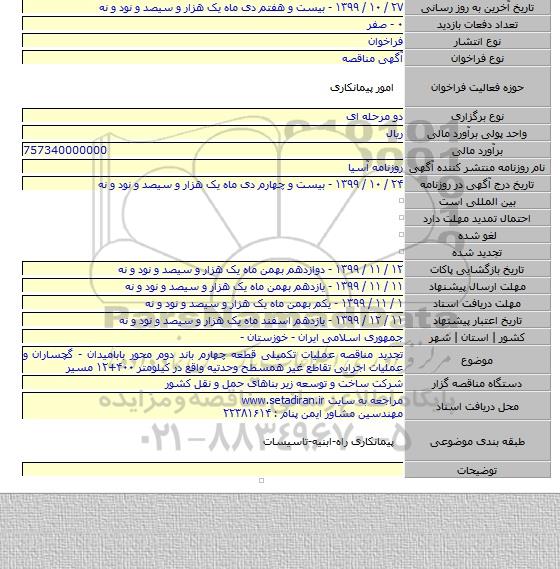 تاریخ آخرین به روز رسانی ۲۷ / ۱۰ / ۱۳۹۹ - بیست و هفتم دی ماه یک هزار و سیصد و نود و نه
تعداد دفعات بازدید ۰ - صفر
نوع انتشار فراخوان
نوع فراخوان آگهی مناقصه
حوزه فعالیت فراخوان امور پیمانکاری
نوع برگزاری دو مرحله ای
واحد پولی برآورد مالی ریال
برآورد مالی 757340000000
نام روزنامه منتشر کننده آگهی روزنامه آسیا
تاریخ درج آگهی در روزنامه ۲۴ / ۱۰ / ۱۳۹۹ - بیست و چهارم دی ماه یک هزار و سیصد و نود و نه
بین المللی است
احتمال تمدید مهلت دارد
لغو شده
تجدید شده
تاریخ بازگشایی پاکات ۱۲ / ۱۱ / ۱۳۹۹ - دوازدهم بهمن ماه یک هزار و سیصد و نود و نه
مهلت ارسال پیشنهاد ۱۱ / ۱۱ / ۱۳۹۹ - یازدهم بهمن ماه یک هزار و سیصد و نود و نه
مهلت دریافت اسناد ۱ / ۱۱ / ۱۳۹۹ - یکم بهمن ماه یک هزار و سیصد و نود و نه
تاریخ اعتبار پیشنهاد ۱۱ / ۱۲ / ۱۳۹۹ - یازدهم اسفند ماه یک هزار و سیصد و نود و نه
کشور | استان | شهر جمهوری اسلامی ایران - خوزستان -
موضوع تجدید مناقصه عملیات تکمیلی قطعه چهارم باند دوم محور بابامیدان - گچساران و
عملیات اجرایی تقاطع غیر همسطح وحدتیه واقع در کیلومتر ۴۰۰+۱۲ مسیر
دستگاه مناقصه گزار شرکت ساخت و توسعه زیر بناهای حمل و نقل کشور
محل دریافت اسناد مراجعه به سایت www.setadiran.ir
مهندسین مشاور ایمن پنام : ۲۲۳۸۱۶۱۴
طبقه بندی موضوعی پیمانکاری راه-ابنیه-تاسیسات
توضیحات
۰۲۱-۸۸۳۴۹۶۷۰-۵